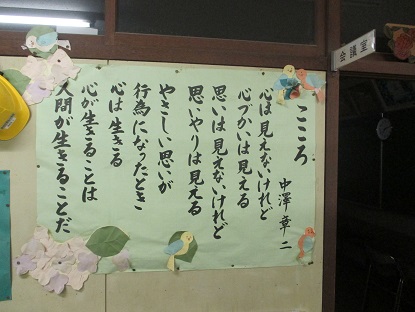 こころ
中澤章二
心は見えないけれど
心づかいは見える
思いは見えないけれど
思いやりは見える
やさしい思いが
行為になったとき
心は生きる
心が生きることは
人間が生きることだ
会議室